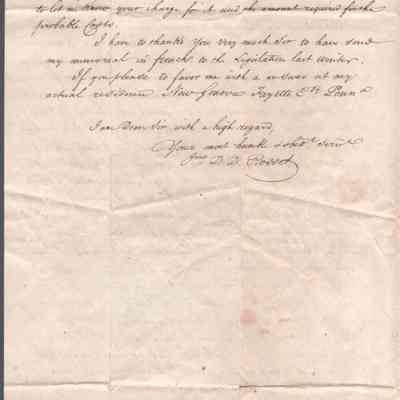 to let me know your charge for it and the amount required for the
probable Costs.
I have to thank you very much Sir to have send
my memorial in french to the Legislature last winter.
If you please to favor me with a answer at my
actual residence New Geneva Fayette Cty Penna
I am Dear Sir, with a high regard,
Your most humb & obt Servt
D. D.